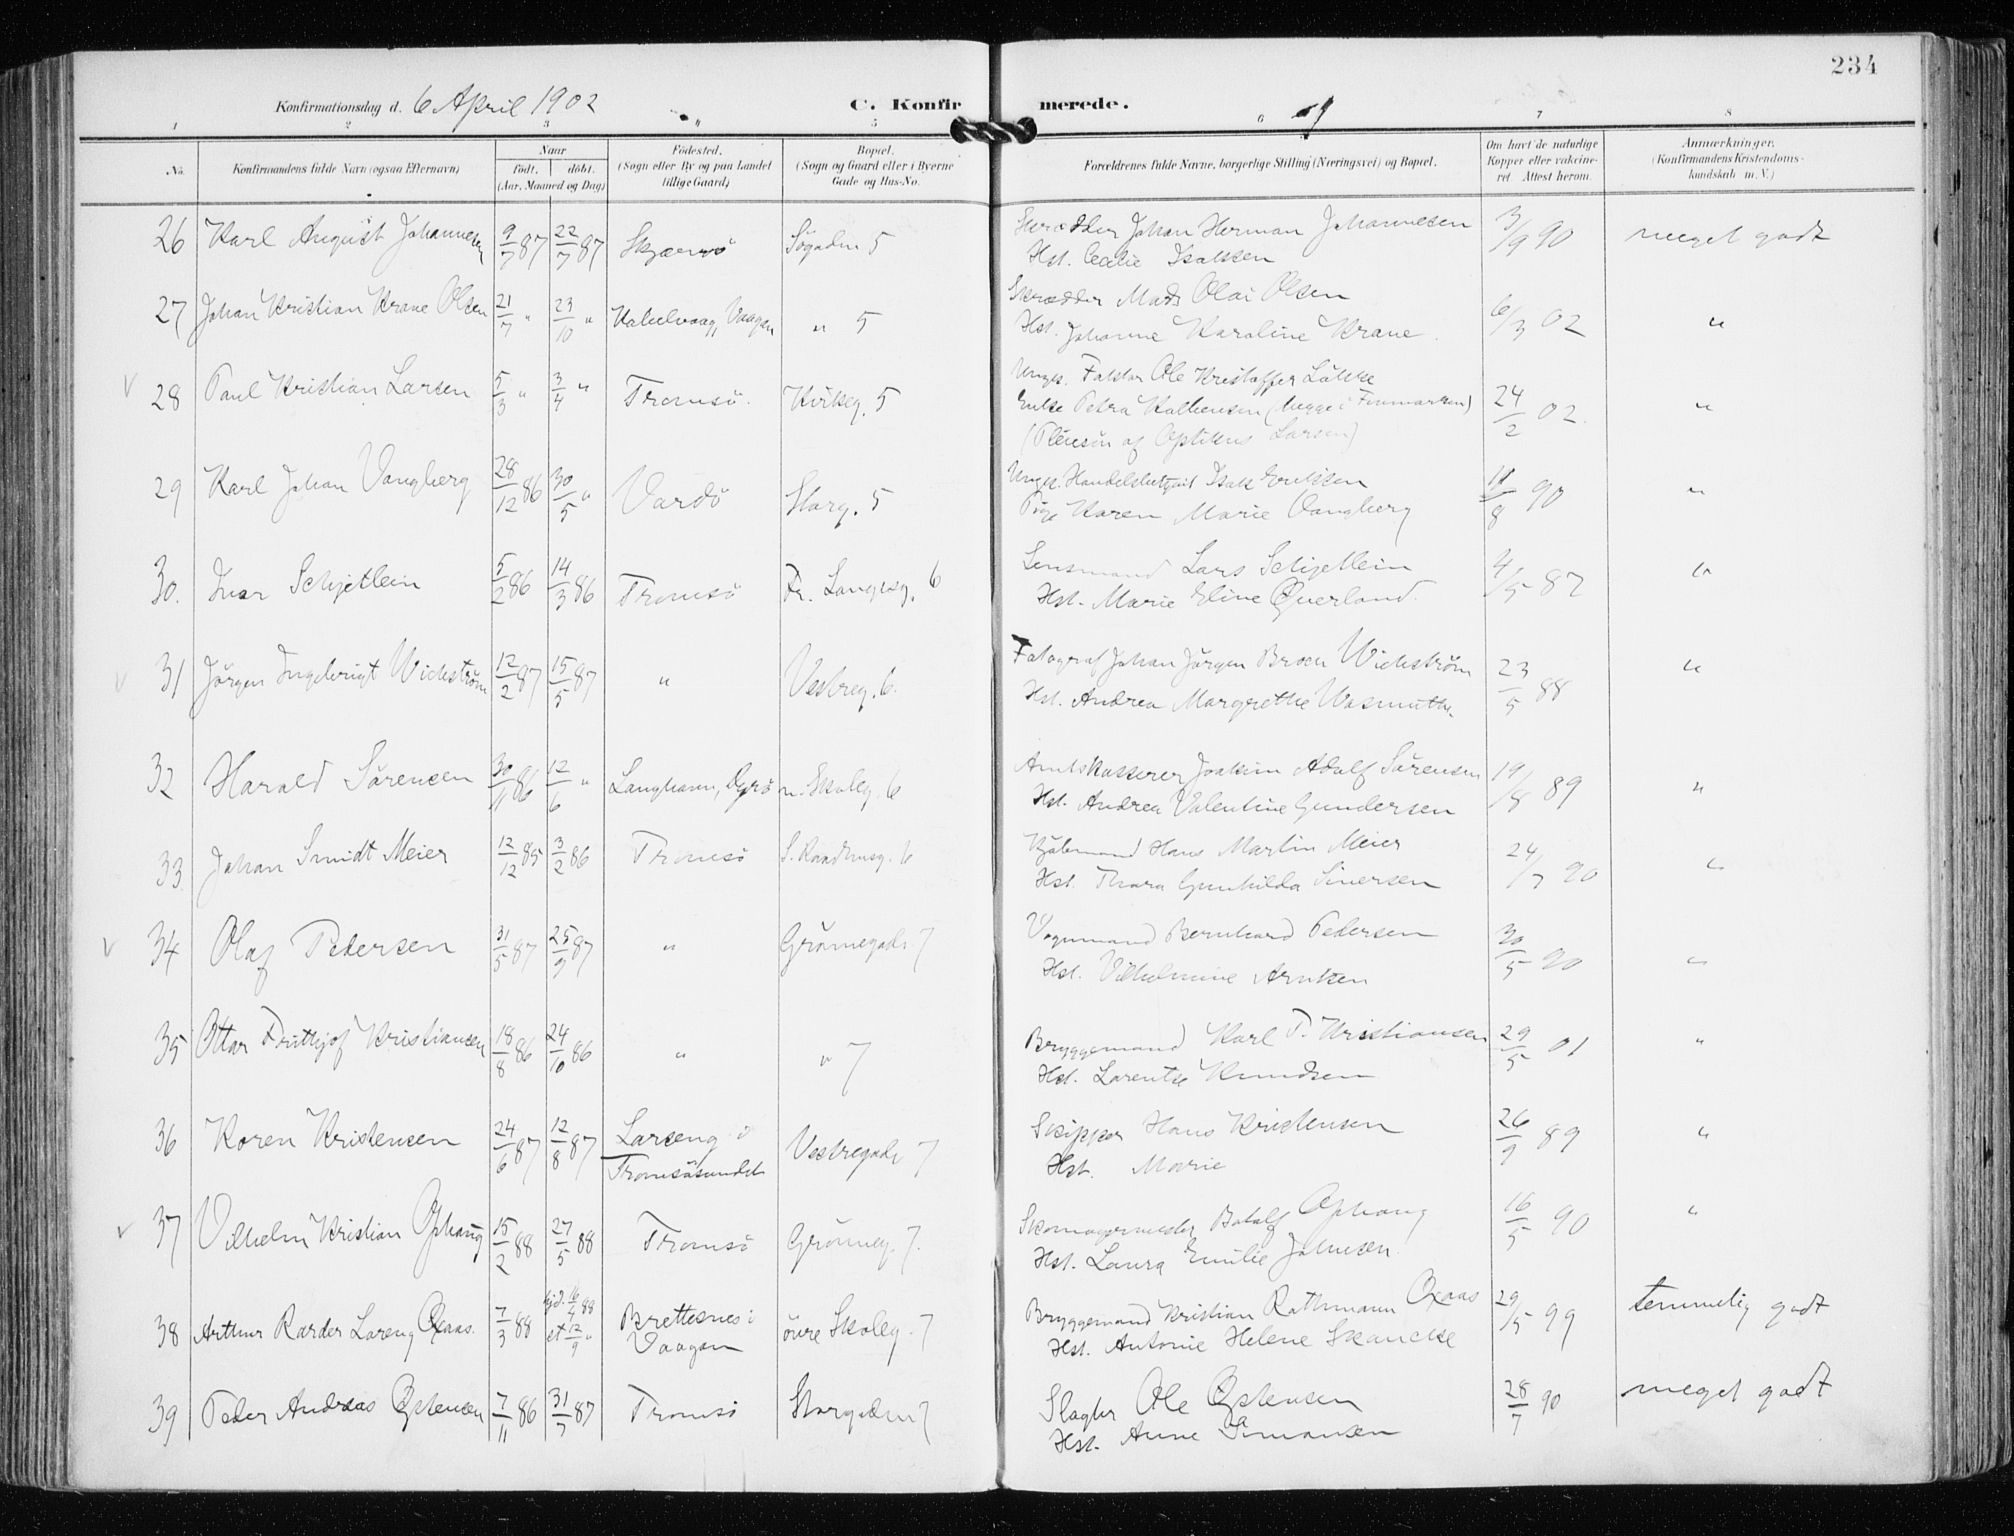 234
Konfirmationsdag d. 6 April 1902
C. Konfirmerede.
1 2 3 " 5 6 7 8
No. Konfirmandens fulde Navn (ogsaa Efternavn) Naar födt. döbt. (Aar, Maaned og Dag) Födested. (Sogn eller By og paa Landet tillige Gaard) Bopæl. (Sogn og Gaard eller i Byerne Gade og Hus-No. Forældrenes fulde Navne, borgerlige Stilling (Næringsvei) og Bopæl. Om havt de naturlige Kopper eller vakcineret Attest herom. Anmærkninger. (Konfirmandens Kristendomskundskab m. V.)
26 Karl August Johannesen 9/7 87 22/7 87 Skjærvö Søgaden 5 Skrædder Johan Herman Johannesen 3/9 90 meget godt
Hst. Cecilie Isaksen
27 Johan Kristian Krane Olsen 21/7 " 23/10 " Kabelvaag, Vaagan " 5 Skrædder Mads Olai Olsen 6/3 02 "
Hst. Johanne Karoline Krane
28 Paul Kristian Larsen 5/3 " 3/4 " Tromsö. 5 Ungk. Faktor Ole Kristoffer Lökke 24/2 02. "
Enke Petra (begge i Finmarken)
(Pleiesön af Larsen)
29 Karl Johan Vangberg 28/12 86 30/5 " Vardö Storg. 5 Ungk. Handelsbetjent Isak Eriksen 11/8 90 "
Pige Karen Marie Vangberg
30. Ivar Schjetlein 5/2 86 14/3 86 Tromsö Fr. Langesg. 6 Lensmand Lars Schjetlein 4/5 87 "
Hst. Marie Eline Qverland.
31 Jörgen Ingebrigt Wickström 12/2 87 15/5 87 " Vestreg. 6. Fotograf Johan Jörgen Broch Wickström 23/5 88 "
Hst. Andrea Margrethe Wasmuth.
32 Harald Sörensen 30/11 86 12/6 " Langhavn, Dyrö n. Skoleg. 6 Amtskasserer Joakim Adolf Sörensen 19/8 89 "
Hst. Andrea Valentine Gundersen
33 Johan Smidt Meier 12/12 85 3/2 86 Tromsö S. Raadhusg. 6 Kjöbmand Hans Martin Meier 24/7 90 "
Hst. Thora Gunhilda Siversen
34 Olaf Pedersen 31/5 87 25/9 87 " Grönnegade 7 Vognmand Bernhard Pedersen 30/5 90 "
Hst. Vilhelmine Arntsen
35 Ottar Frithjof Kristiansen 18/8 86 24/10 86 " " 7 Bryggemand Karl P. Kristiansen 29/5 01 "
Hst. Larentse Knudsen
36 Koren Kristensen 24/6 87 12/8 87 Larseng i Tromsösundet Vestregade 7 Skipper Hans Kristensen 26/9 89 "
Hst. Marie
37 Vilhelm Kristian Ophaug 15/2 88 27/5 88 Tromsö Grönneg. 7. Skomagermester Botolf Ophaug 16/5 90 "
Hst. Laura Emilie Johnsen.
38 Arthur Rarder Loreng Oxaas. 7/3 88 hjd. 16/4 88 st 12/9 " Brettesnes i Vaagan övre Skoleg. 7 Bryggemand Kristian Rathmann Oxaas 29/5 99 temmelig godt
Hst. Antonie Helene Skancke
39 Peder Andreas Östensen 7/11 86 31/7 87 Tromsö Storgaden 7 Slagter Ole Östensen 28/7 90 meget godt
Hst. Anne Simonsen